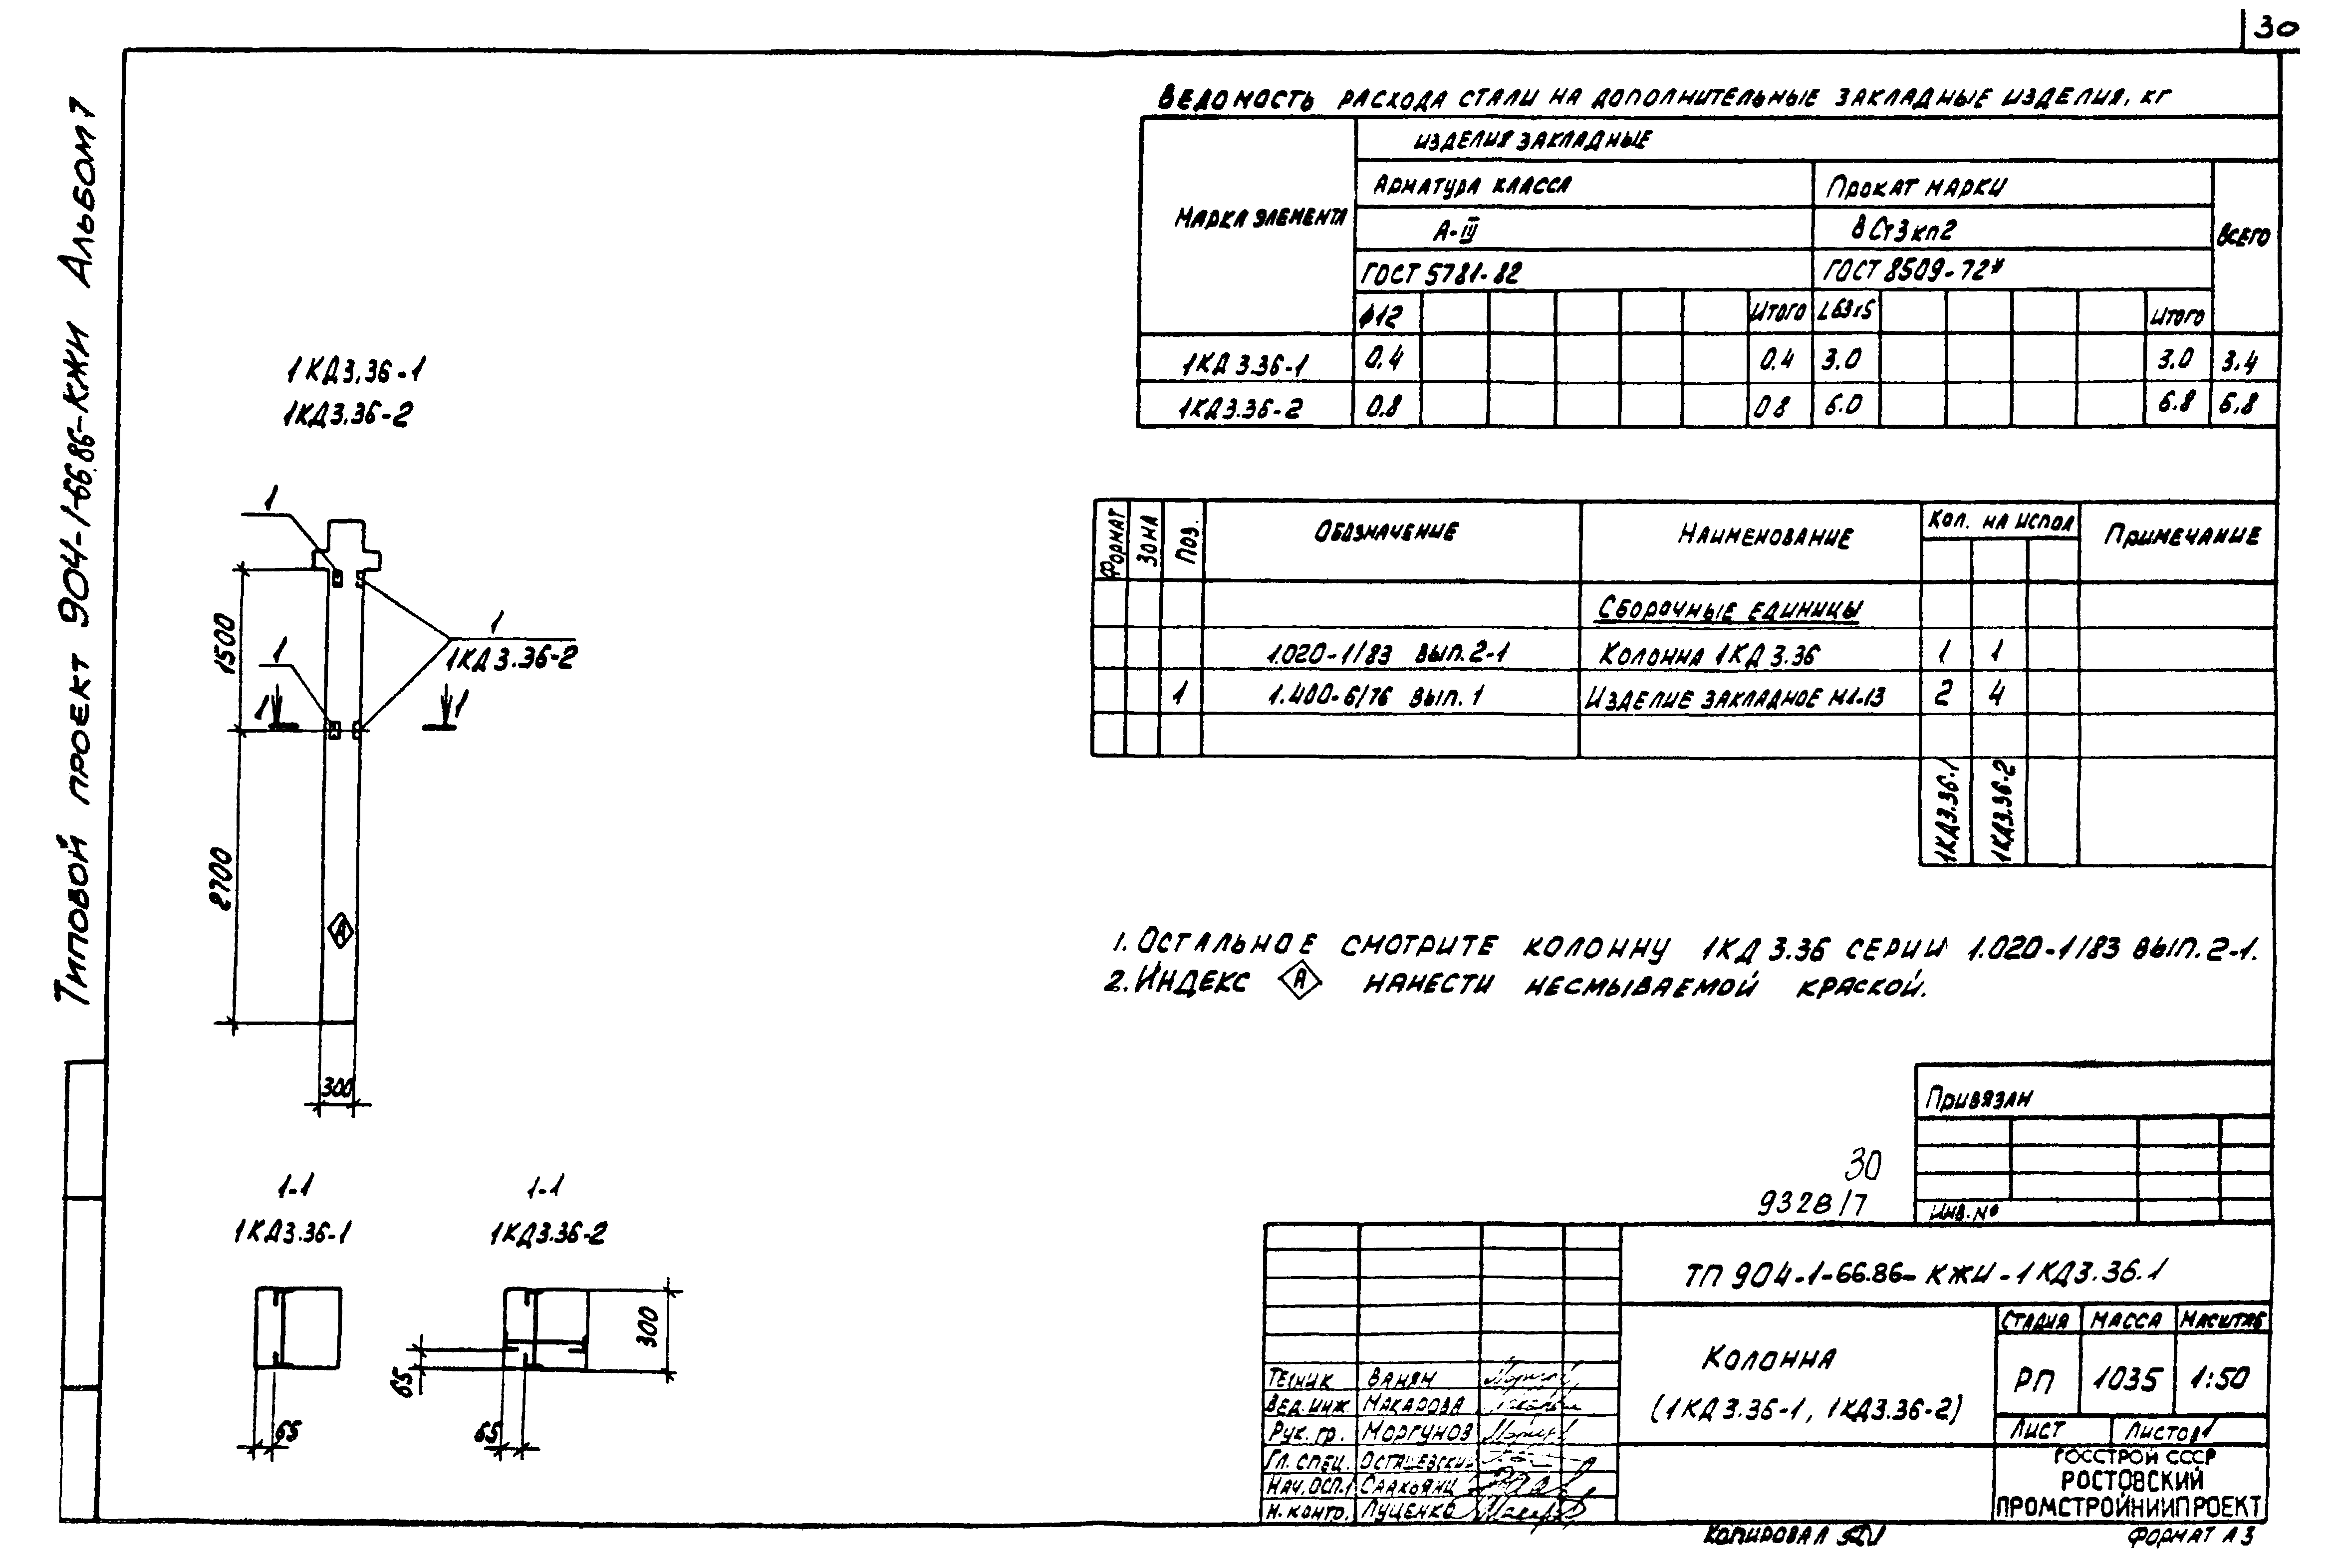 30
Типовой проект 904-1-66.86-КЖИ Альбом 7
Ведомость расхода стали на дополнительные закладные изделия, кг
Марка элемента
Изделия закладные
Арматура класса
Прокат марки
Всего
А-III
ВСт3кп2
ГОСТ 5781-82
ГОСТ 8509-72*
ϕ12 Итого L63x5 Итого
1КД3.36-1 0.4 0.4 3.0 3.0 3.4
1КД3.36-2 0.8 0.8 6.0 6.8 6.8
1КД3.36-1
1КД3.36-2
1
1
1
1КД3.36-2
1 1
1500
2700
А
300
1-1
1КД3.36-1
65
1-1
1КД3.36-2
300
65
65
Формат Зона Поз. Обозначение Наименование Кол. на испол Примечание
Сборочные единицы
1.020-1/83 вып.2-1 Колонна 1КД3.36 1 1
1 1.400-6/76 вып.1 Изделие закладное М1-13 2 4
1КД3.36-1 1КД3.36-2
1. Остальное смотрите колонну 1КД3.36 серии 1.020-1/83 вып.2-1.
2. Индекс А нанести несмываемой краской.
Привязан
Инв.№
30
9328/7
ТП 904-1-66.86-КЖИ-1КД3.36.1
Колонна
(1КД3.36-1, 1КД3.36-2)
Стадия Масса Масштаб
РП 1035 1:50
Лист Листов 1
Госстрой СССР
Ростовский
Промстройниипроект
Техник Ванян
Вед.инж. Макарова
Рук.гр. Моргунов
Гл.спец. Осташевский
Нач.ОСП.1 Саакьянц
Н.контр. Луценко
Копировал
Формат А3